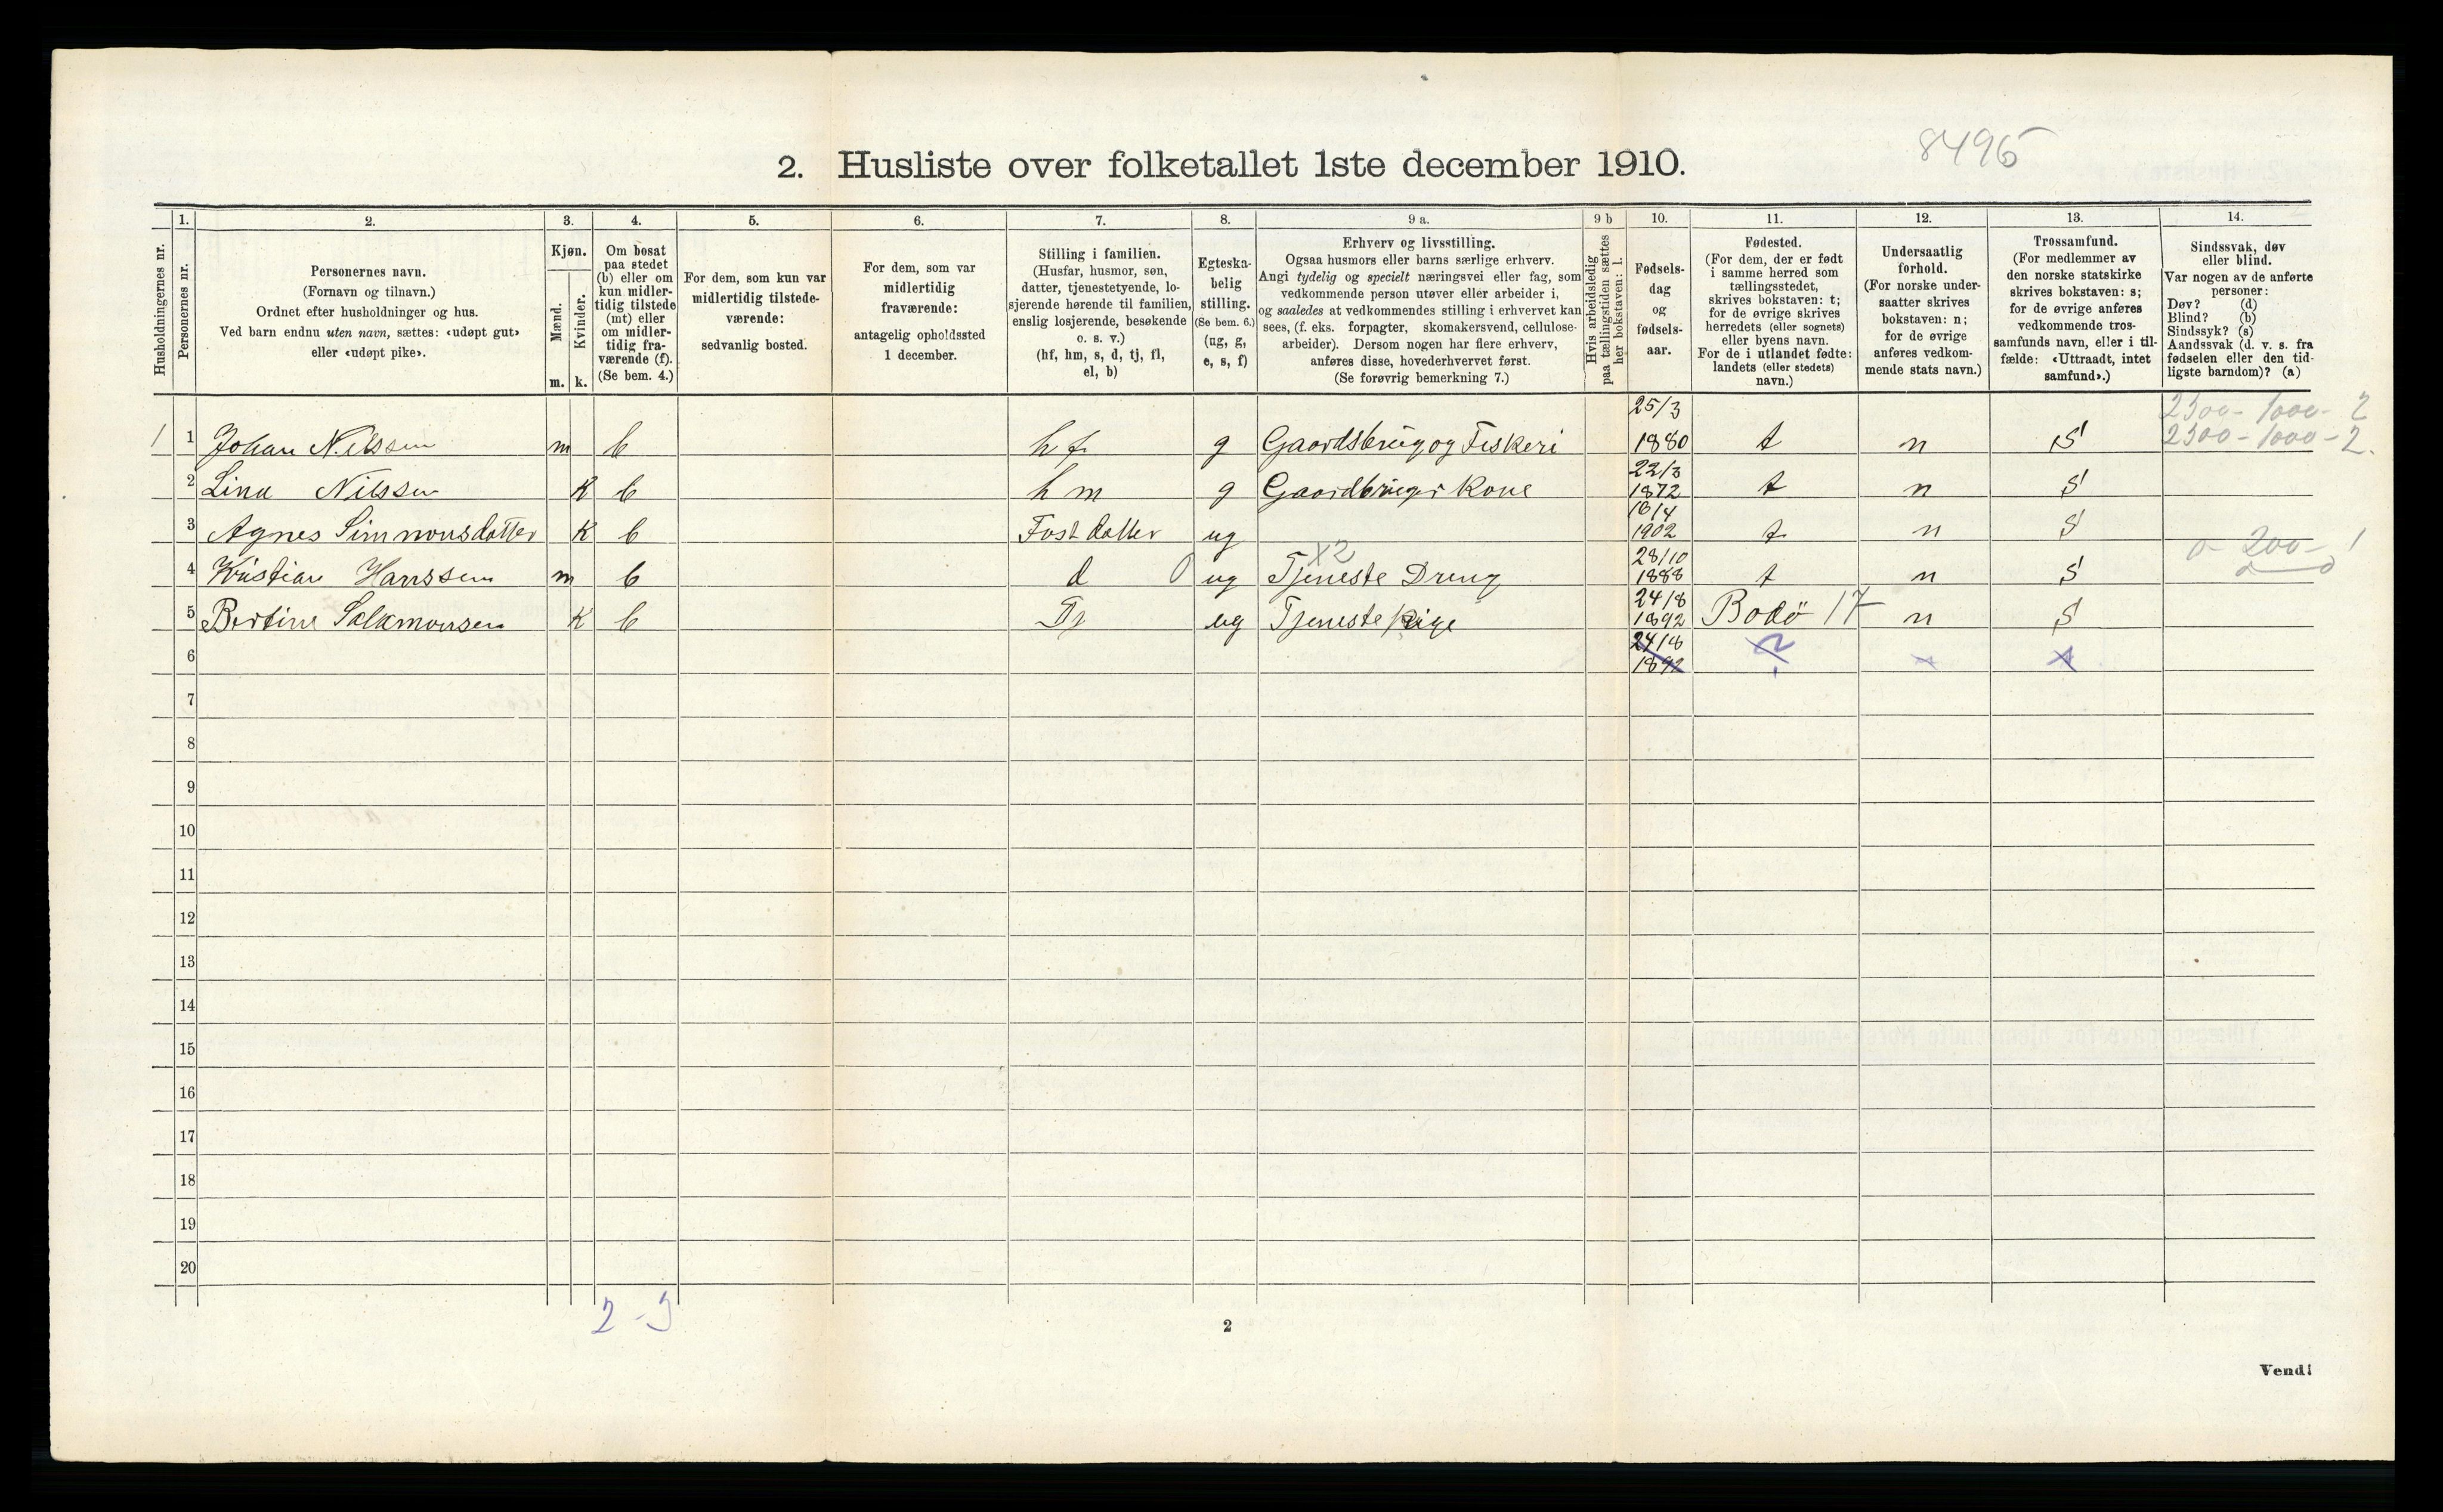 8495
2. Husliste over folketallet 1ste december 1910.
Husholdningernes nr.
1.
Personernes nr.
2.
Personernes navn.
(Fornavn og tilnavn.)
Ordnet efter husholdninger og hus.
Ved barn endnu uten navn, sættes: «udøpt gut»
eller «udøpt pike».
3.
Kjøn.
Mænd.
Kvinder.
m. k.
4.
Om bosat
paa stedet
(b) eller om
kun midler-
tidig tilstede
(mt) eller
om midler-
tidig fra-
værende (f).
(Se bem. 4.)
5.
For dem, som kun var
midlertidig tilstede-
værende:
sedvanlig bosted.
6.
For dem, som var
midlertidig
fraværende:
antagelig opholdssted
1 december.
7.
Stilling i familien.
(Husfar, husmor, søn,
datter, tjenestetyende, lo-
sjerende hørende til familien,
enslig losjerende, besøkende
o. s. v.)
(hf, hm, s, d, tj, fl,
el, b)
8.
Egteska-
belig
stilling.
(Se bem. 6.)
(ug, g,
e, s, f)
9 a.
Erhverv og livsstilling.
Ogsaa husmors eller barns særlige erhverv.
Angi tydelig og specielt næringsvei eller fag, som
vedkommende person utøver eller arbeider i,
og saaledes at vedkommendes stilling i erhvervet kan
sees, (f. eks. forpagter, skomakersvend, cellulose-
arbeider). Dersom nogen har flere erhverv,
anføres disse, hovederhvervet først.
(Se forøvrig bemerkning 7.)
9 b
Hvis arbeidsledig
paa tællingstiden sættes
her bokstaven: l.
10.
Fødsels-
dag
og
fødsels-
aar.
11.
Fødested.
(For dem, der er født
i samme herred som
tællingsstedet,
skrives bokstaven: t;
for de øvrige skrives
herredets (eller sognets)
eller byens navn.
For de i utlandet fødte:
landets (eller stedets)
navn.)
12.
Undersaatlig
forhold.
(For norske under-
saatter skrives
bokstaven: n;
for de øvrige
anføres vedkom-
mende stats navn.)
13.
Trossamfund.
(For medlemmer av
den norske statskirke
skrives bokstaven: s;
for de øvrige anføres
vedkommende tros-
samfunds navn, eller i til-
fælde: «Uttraadt, intet
samfund».)
14.
Sindssvak, døv
eller blind.
Var nogen av de anførte
personer:
Døv? (d)
Blind? (b)
Sindssyk? (s)
Aandssvak (d. v. s. fra
fødselen eller den tid-
ligste barndom)? (a)
2300 - 1000 - 2
1 1 Johan Nilssen m b hf g Gaardsbrug og Fiskeri 25/3 1880 t n S 2300 - 1000 - 2.
2 Lina Nilssen K b hm g Gaardbruger Kone 22/3 1872 t n S
3 Agnes Simmonsdatter K b Fost datter ug 16/4 1902 t n S
X2 0 - 200 - 1
4 Kristian Hanssen m b d 0 ug Tjeneste Dreng 28/10 1888 t n S
5 Bertine Salamonsen K b Tj ug Tjeneste Pige 24/8 1892 Bodö 17 n S
6 24/8 1892 ?
7
8
9
10
11
12
13
14
15
16
17
18
19
20
2 - 3
2
Vend!